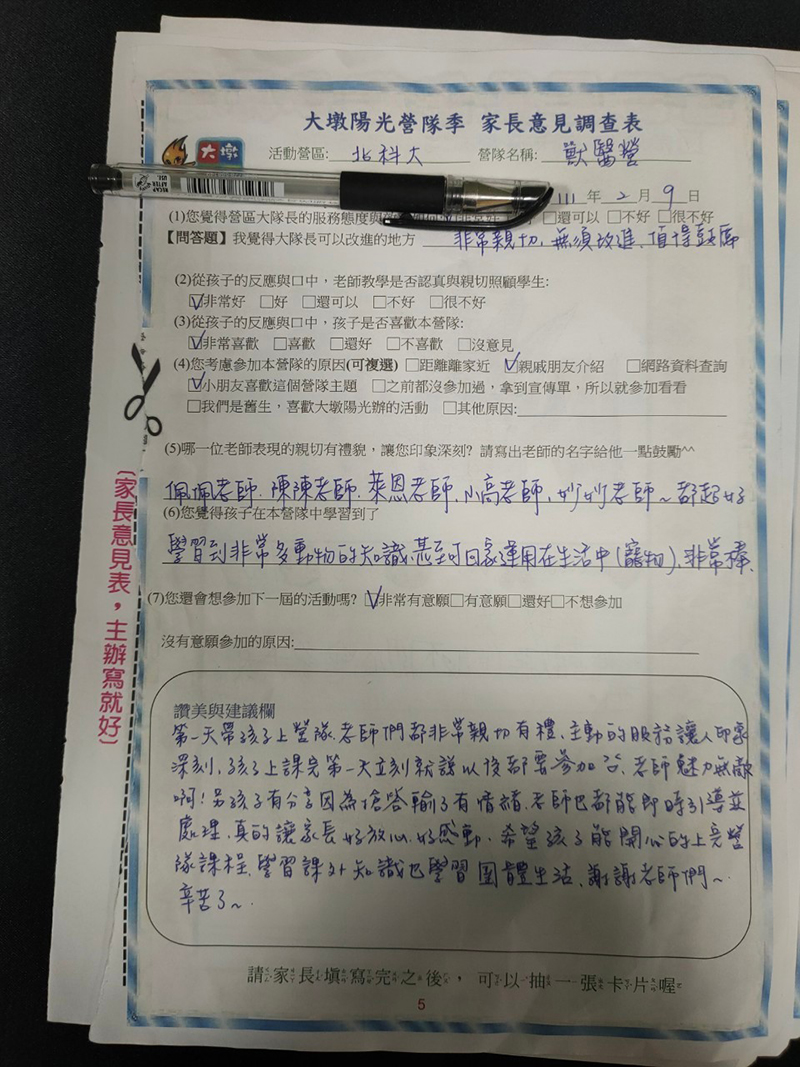 大墩陽光營隊季 家長意見調查表
大墩 活動營區: 北科大 營隊名稱: 獸醫營
111 年 2 月 9 日
(1)您覺得營區大隊長的服務態度與 □還可以 □不好 □很不好
【問答題】我覺得大隊長可以改進的地方 非常親切、無須改進、值得鼓勵
(2)從孩子的反應與口中，老師教學是否認真與親切照顧學生:
☑非常好 □好 □還可以 □不好 □很不好
(3)從孩子的反應與口中，孩子是否喜歡本營隊:
☑非常喜歡 □喜歡 □還好 □不喜歡 □沒意見
(4)您考慮參加本營隊的原因(可複選) □距離離家近 ☑親戚朋友介紹 □網路資料查詢
☑小朋友喜歡這個營隊主題 □之前都沒參加過，拿到宣傳單，所以就參加看看
□我們是舊生，喜歡大墩陽光辦的活動 □其他原因:
(5)哪一位老師表現的親切有禮貌，讓您印象深刻? 請寫出老師的名字給他一點鼓勵^^
佩佩老師、陳陳老師、萊恩老師、小高老師、妙妙老師~都超好
(6)您覺得孩子在本營隊中學習到了
學習到非常多動物的知識、甚至可回家運用在生活中(寵物)、非常棒、
(7)您還會想參加下一屆的活動嗎? ☑非常有意願□有意願□還好□不想參加
沒有意願參加的原因:
讚美與建議欄
第一天帶孩子上營隊、老師們都非常親切有禮、主動的服務讓人印象
深刻、孩子上課完第一天立刻就說以後都要參加、老師魅力無敵
啊! 另孩子有分享因為搶答輸了有情緒、老師也都能即時引導並
處理、真的讓家長好放心、好感動、希望孩子能開心的上完營
隊課程、學習課外知識也學習團體生活、謝謝老師們~
辛苦了~
請家長填寫完之後，可以抽一張卡片喔
5
〔家長意見表，主辦寫就好〕